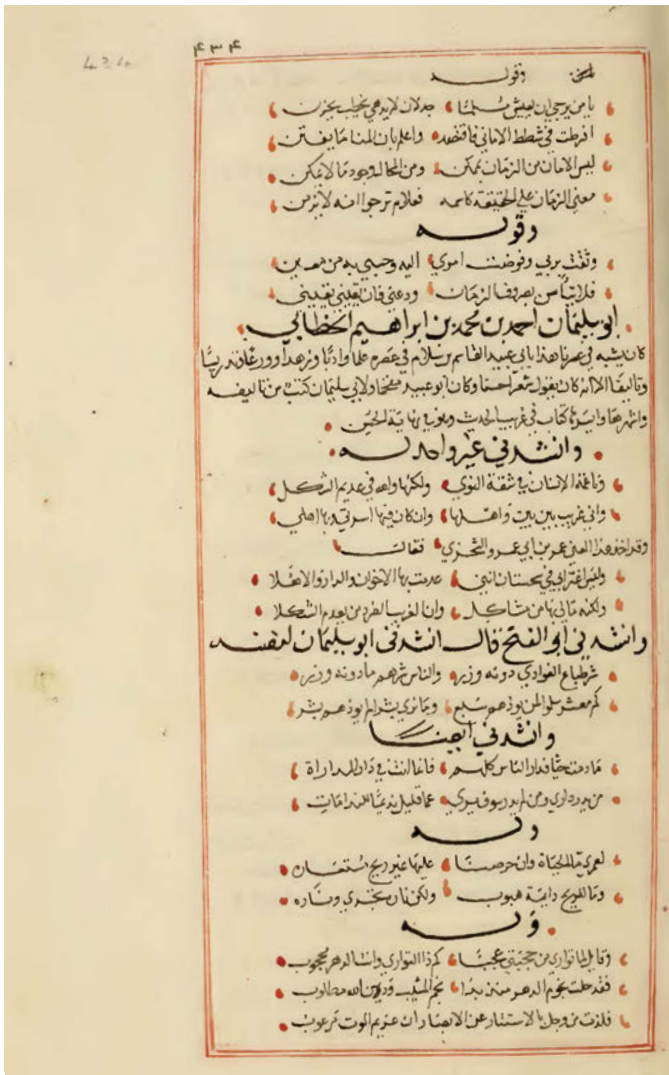 ٤٣٤
وقوله
يا من يرجي ان يعيش مسلما جذلان لا يدهي بخطب يحزن
افرطت في شطط الاماني فاقتصد واعلم بان المنا ما يفتن
ليس الامان من الزمان بممكن ومن المحال وجود ما لا يمكن
معنى الزمان على الحقيقة كاسمه فعلام ترجوا انه لا يزمن
وقوله
وثقت بربي وفوضت امري اليه وحسبي به من معين
فلا تيأسن بصروف الزمان ودعني فان يقيني يقيني
ابو سليمان احمد بن محمد بن ابراهيم الخطابي
كان يشبه في عصرنا هذا بابي عبيد القاسم بن سلام في عصره علما وادبا وزهدا وورعا وتدريسا
وتاليفا الا انه كان يقول شعرا حسنا وكان ابو عبيد مفحما ولابي سليمان كتب من تاليفه
واشهرها وايسرها كتاب في غريب الحديث وهو في نهاية الحسن
وانشدني غير واحد له
وما غمة الانسان في شقة النوى ولكنها والله في عديم الشكل
واني غريب بين بست واهلها وان كان فيها اسرتي وبها اهلي
وقد اخذ هذا المعنى عمر بن ابي عمرو السجزي فقال
وليس اغترابي في سجستان انني عدمت بها الاخوان والدار والاهلا
ولكنه مالي بها من مشاكل وان الغريب الفرد من يعدم الشكلا
وانشدني ابو الفتح قال انشدني ابو سليمان لنفسه
شر طباع العوادي دونه وزر والناس شرهم ما دونه وزر
كم معشر سلموا لم يوذهم سبع وما نرى بشرا لم يوذهم بشر
وانشدني ايضا
ما دمت حيا فدار الناس كلهم فانما انت في دار المداراة
من يدر داري ومن لم يدر سوف يرى عما قليل نديما للندامات
وله
لعمري ما الحياة وان حرصنا عليها غير ريح مستعارة
وما للريح دايمة هبوب ولكن تارة تجري وتارة
وله
وقايل لما تواري من حجبتي عجبا كم ذا التواري وانت الدهر محجوب
فقد حلت نجوم الدهر منذ بدا نجم المشيب ودين الله مطلوب
فلذت من وجل بالاستتار عن الابصار ان غريم الموت مرعوب